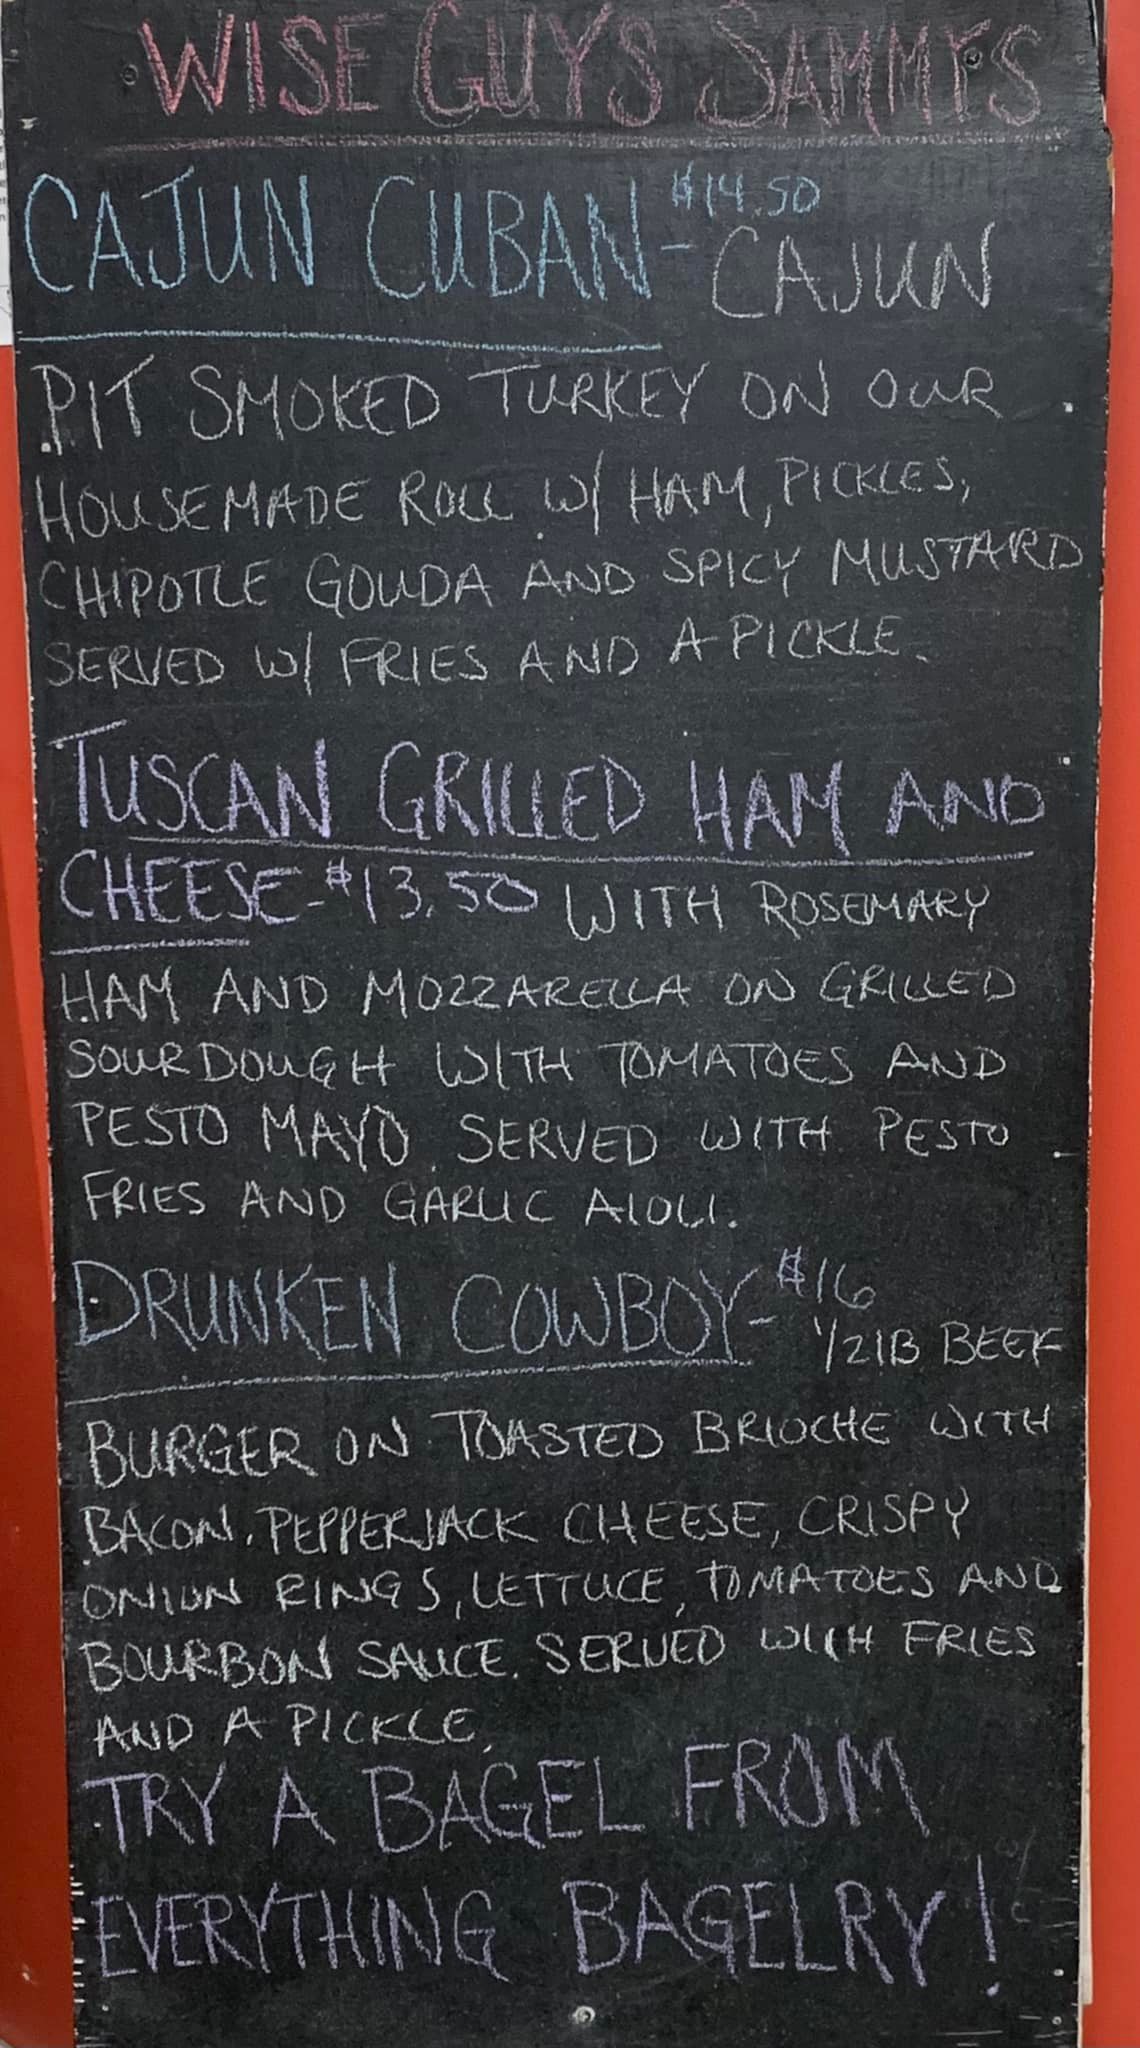 WISE GUYS SAMMYS
CAJUN CUBAN - $14.50
CAJUN
PIT SMOKED TURKEY ON OUR
HOUSEMADE ROLL W/ HAM, PICKLES,
CHIPOTLE GOUDA AND SPICY MUSTARD
SERVED W/ FRIES AND A PICKLE.
TUSCAN GRILLED HAM AND
CHEESE - $13.50 WITH ROSEMARY
HAM AND MOZZARELLA ON GRILLED
SOURDOUGH WITH TOMATOES AND
PESTO MAYO. SERVED WITH PESTO
FRIES AND GARLIC AIOLI.
DRUNKEN COWBOY - $16
1/2 LB BEEF
BURGER ON TOASTED BRIOCHE WITH
BACON, PEPPERJACK CHEESE, CRISPY
ONION RINGS, LETTUCE, TOMATOES AND
BOURBON SAUCE. SERVED WITH FRIES
AND A PICKLE.
TRY A BAGEL FROM
EVERYTHING BAGELRY!